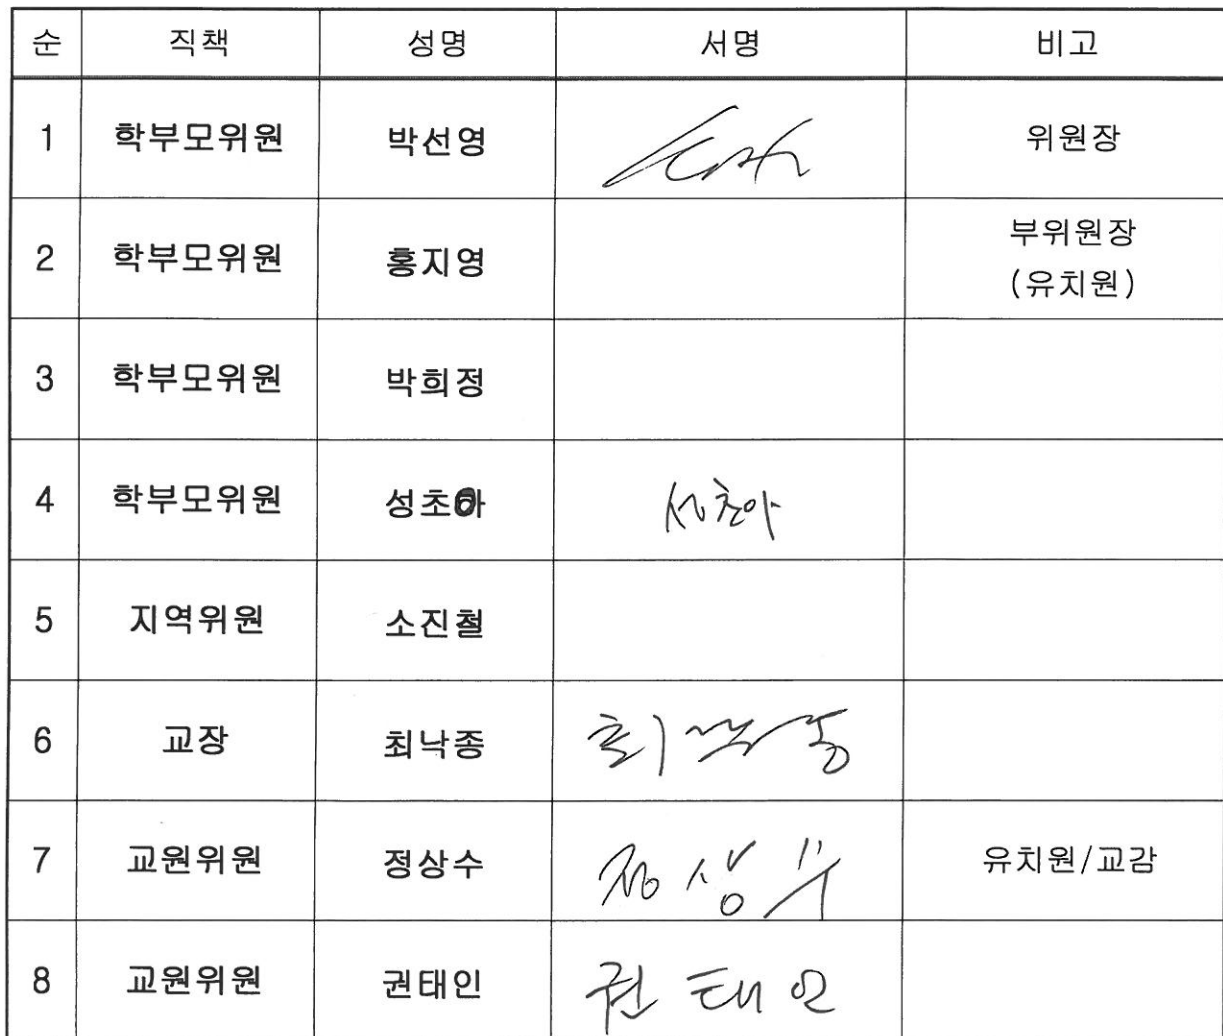 순 직책 성명 서명 비고
1 학부모위원 박선영 위원장
2 학부모위원 홍지영 부위원장
(유치원)
3 학부모위원 박희정
4 학부모위원 성초아 성초아
5 지역위원 소진철
6 교장 최낙종 최낙종
7 교원위원 정상수 정상수 유치원/교감
8 교원위원 권태인 권태인